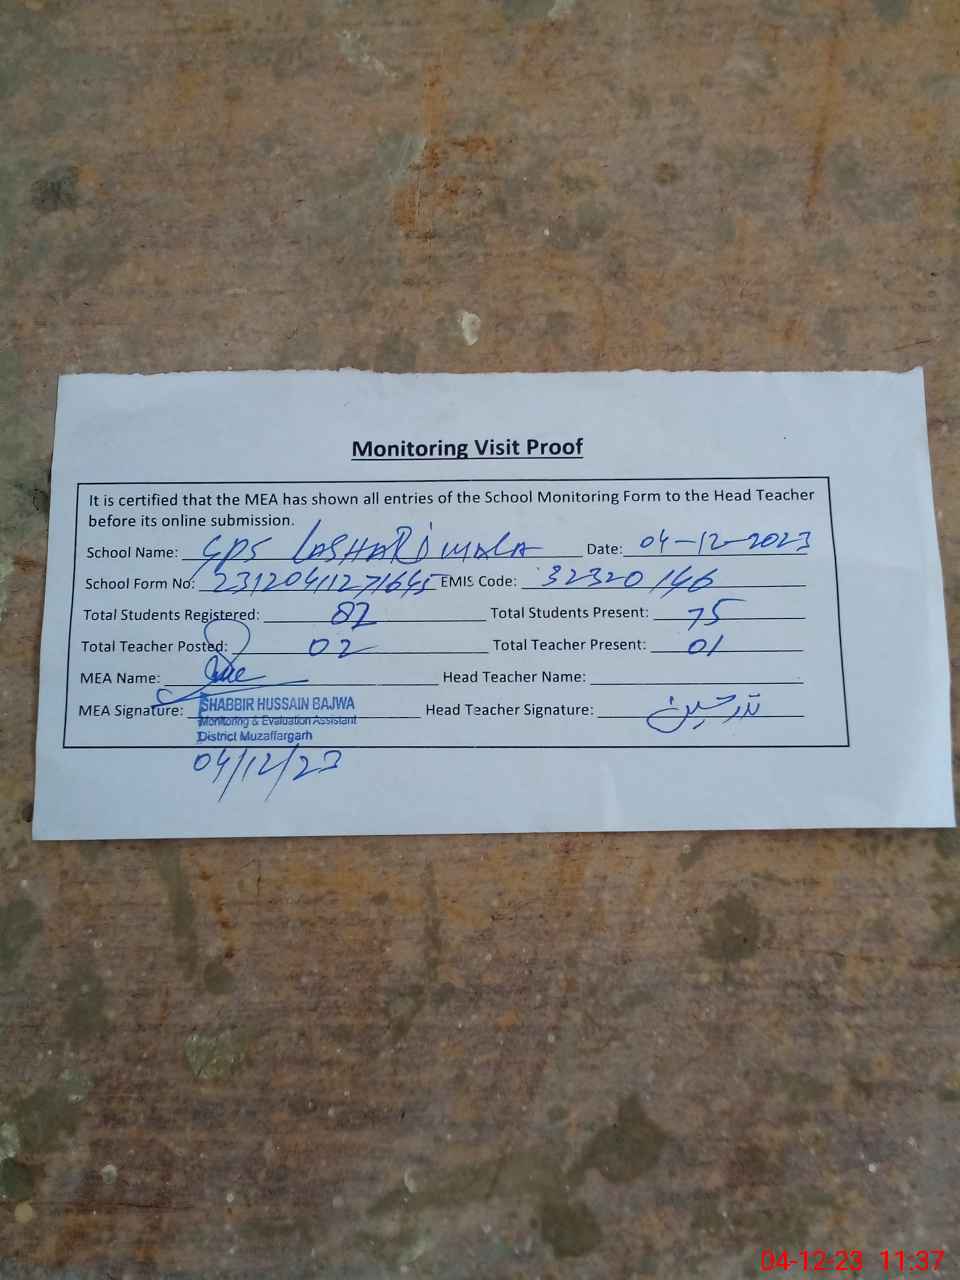 Monitoring Visit Proof
It is certified that the MEA has shown all entries of the School Monitoring Form to the Head Teacher
before its online submission.
School Name: GPS LASHARI WALA Date: 04-12-2023
School Form No: 23120411271645 EMIS Code: 32320146
Total Students Registered: 82 Total Students Present: 75
Total Teacher Posted: 02 Total Teacher Present: 01
MEA Name: Head Teacher Name:
MEA Signature: SHABBIR HUSSAIN BAJWA Head Teacher Signature:
Monitoring & Evaluation Assistant
District Muzaffargarh
04/12/23
04-12-23 11:37